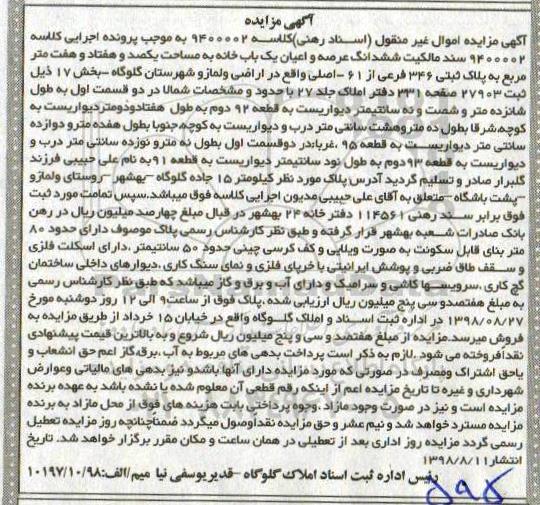 آگهی مزایده
آگهی مزایده اموال غیر منقول (اسـناد رهنی)کلاسـه ۹۴۰۰۰۰۲ به موجب پرونده اجرایی کلاسه
۹۴۰۰۰۰۲ سند مالکیت ششدانگ عرصه و اعیان یک باب خانه به مساحت یکصد و هفتاد و هفت متر
مربع به پلاک ثبتی ۳۴۶ فرعی از ۶۱-اصلی واقع در اراضی ولمازو شهرستان گلوگاه-بخش ۱۷ ذیل
ثبت ۲۷۹۰۳ صفحه ۳۳۱ دفتر املاک جلد ۲۷ با حدود و مشخصات شمالا در دو قسمت اول به طول
شانزده متر و شصت و نه سانتیمتر دیواریست به قطعه ۹۲ دوم به طول هفتادودومتردیواریست به
کوچه،شرقا بطول ده متروهشت سانتی متر درب و دیواریست به کوچه،جنوبا بطول هفده متر و دوازده
سانتی متر دیواریست به قطعه ۹۵ ،غربادر دوقسمت اول بطول ده مترو نوزده سانتی متر درب و
دیواریست به قطعه ۹۳دوم به طول نود سانتیمتر دیواریست به قطعه ۹۱به نام علی حبیبی فرزند
گلبرار صادر و تسلیم گردید آدرس پلاک مورد نظر کیلومتر ۱۵ جاده گلوگاه -بهشهر-روستای ولمازو
-پشت باشگاه -متعلق به آقای علی حبیبی مدیون اجرایی کلاسه فوق میباشد.سپس تمامت مورد ثبت
فوق برابر سـند رهنی ۱۱۴۵۶۱ دفتر خانه ۲۴ بهشهر در قبال مبلغ چهارصد میلیون ریال در رهن
بانک صادرات شـعبه بهشهر قرار گرفته و طبق نظر کارشناس رسمی پلاک موصوف دارای حدود ۸۰
متر بنای قابل سکونت به صورت ویلایی و کف کرسی چینی حدود ۵۰ سانتیمتر ،دارای اسکلت فلزی
و سـقف طاق ضربی و پوشش ایرانیتی با خرپای فلزی و نمای سنگ کاری ،دیوارهای داخلی ساختمان
گچ کاری ،سرویسها کاشی و سرامیک و دارای آب و برق و گاز میباشد که طبق نظر کارشناس رسمی
به مبلغ هفتصدو سی پنج میلیون ریال ارزیابی شده .پلاک فوق از ساعت۹ الی ۱۲ روز دوشنبه مورخ
۱۳۹۸/۰۸/۲۷ در اداره ثبت اسناد و املاک گلـوگاه واقع در خیابان ۱۵ خرداد از طریق مزایده به
فروش میرسد.مزایده از مبلغ هفتصد و سی و پنج میلیون ریال شروع و به بالاترین قیمت پیشنهادی
نقدا فروخته می شود .لازم به ذکر است پرداخت بدهی های مربوط به آب ،برق،گاز اعم حق انشعاب و
یاحق اشتراک ومصرف در صورتی که مورد مزایده دارای آنها باشدو نیز بدهی های مالیاتی وعوارض
شهرداری و غیره تا تاریخ مزایده اعم از اینکه رقم قطعی آن معلوم شده یا نشده باشد به عهده برنده
مزایده است و نیز در صورت وجود مازاد ،وجوه پرداختی بابت هزینه های فوق از محل مازاد به برنده
مزایده مسترد خواهد شد و نیم عشر و حق مزایده نقداوصول میگردد ضمناچنانچه روز مزایده تعطیل
رسمی گردد مزایده روز اداری بعد از تعطیلی در همان ساعت و مکان مقرر برگزار خواهد شد. تاریخ
انتشار۱۳۹۸/۸/۱۱
رئیس اداره ثبت اسناد املاک گلوگاه -قدیریوسفی نیا میم/الف:۱۰۱۹۷/۱۰/۹۸